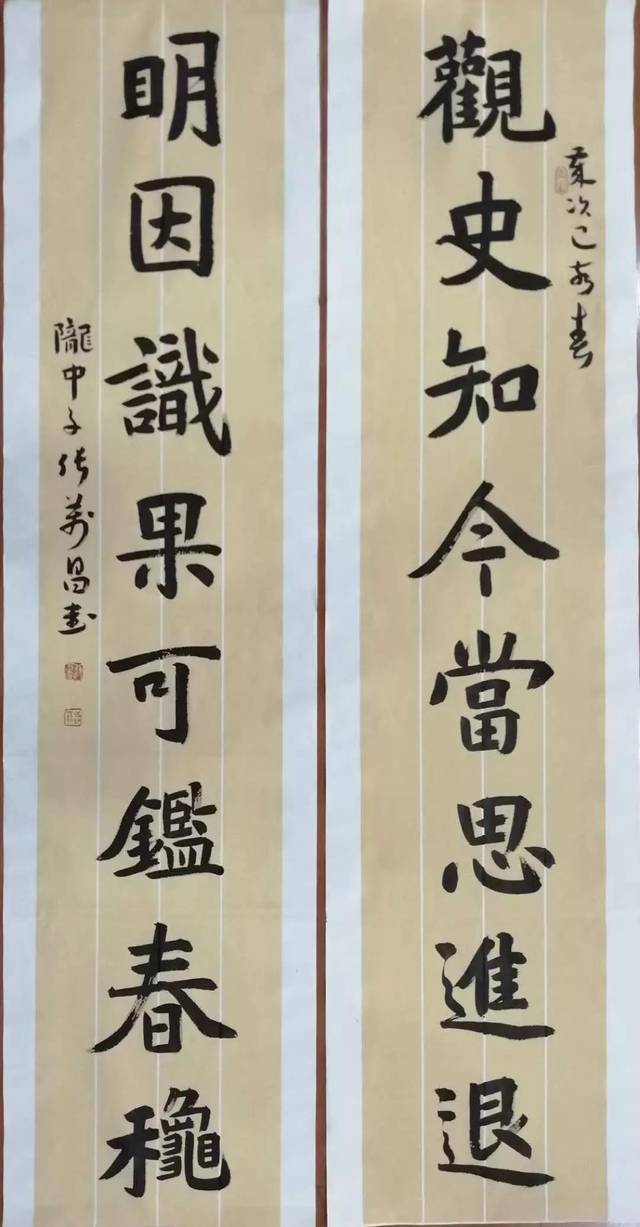 觀史知今當思進退
歲次己亥春
明因識果可鑑春龝
隴中子張萬昌書